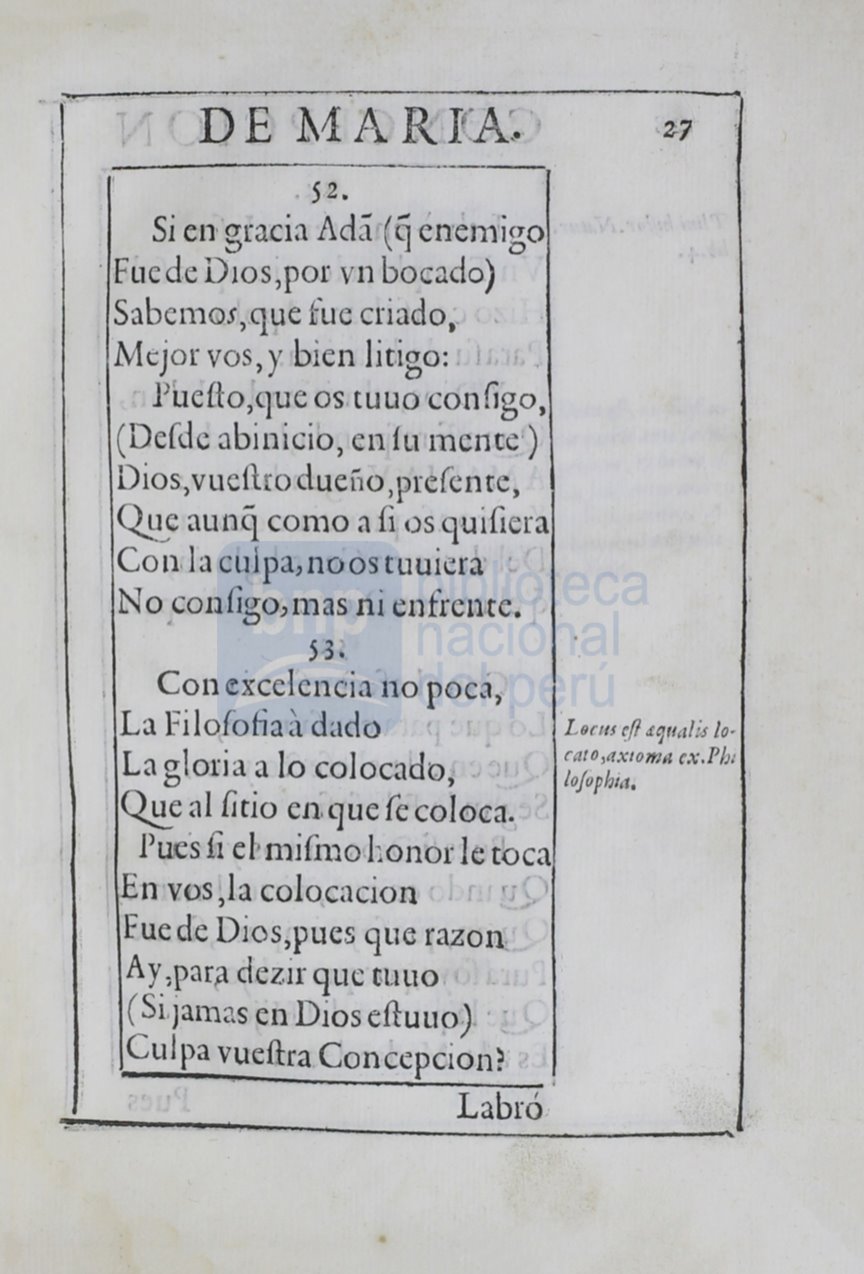 DE MARIA. 27
52.
Si en gracia Adā (q̃ enemigo
Fue de Dios,por vn bocado)
Sabemos,que fue criado,
Mejor vos,y bien litigo:
Pueſto,que os tuuo conſigo,
(Deſde abinicio, en ſu mente )
Dios,vueſtro dueño,preſente,
Que aunq̃ como a ſi os quiſiera
Con la culpa,no os tuuiera
No conſigo,mas ni enfrente.
53.
Con excelencia no poca,
La Filoſofia à dado
La gloria a lo colocado,
Que al ſitio en que ſe coloca.
Pues ſi el miſmo honor le toca
En vos,la colocacion
Fue de Dios,pues que razon
Ay,para dezir que tuuo
(Si jamas en Dios eſtuuo)
Culpa vueſtra Concepcion?
Labró
Locus eſt æqualis lo-
cato,axioma ex.Phi
loſophia.
bnp biblioteca
nacional
del perú